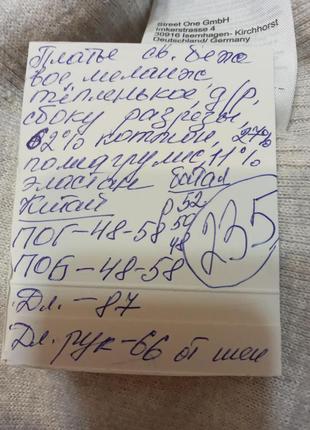 Street One GmbH
Imkerstrasse 4
30916 Isernhagen - Kirchhorst
Deutschland/ Germany
Платье св. беже
вое, меланж,
тёпленькое, д/р,
сбоку разрезы,
62% коттон, 27%
полиа 11%
эластан батал
Китай р 52
ПОГ-48-58 50
48
235
ПОБ-48-58
Дл. -87
Дл. рук-66 от шеи